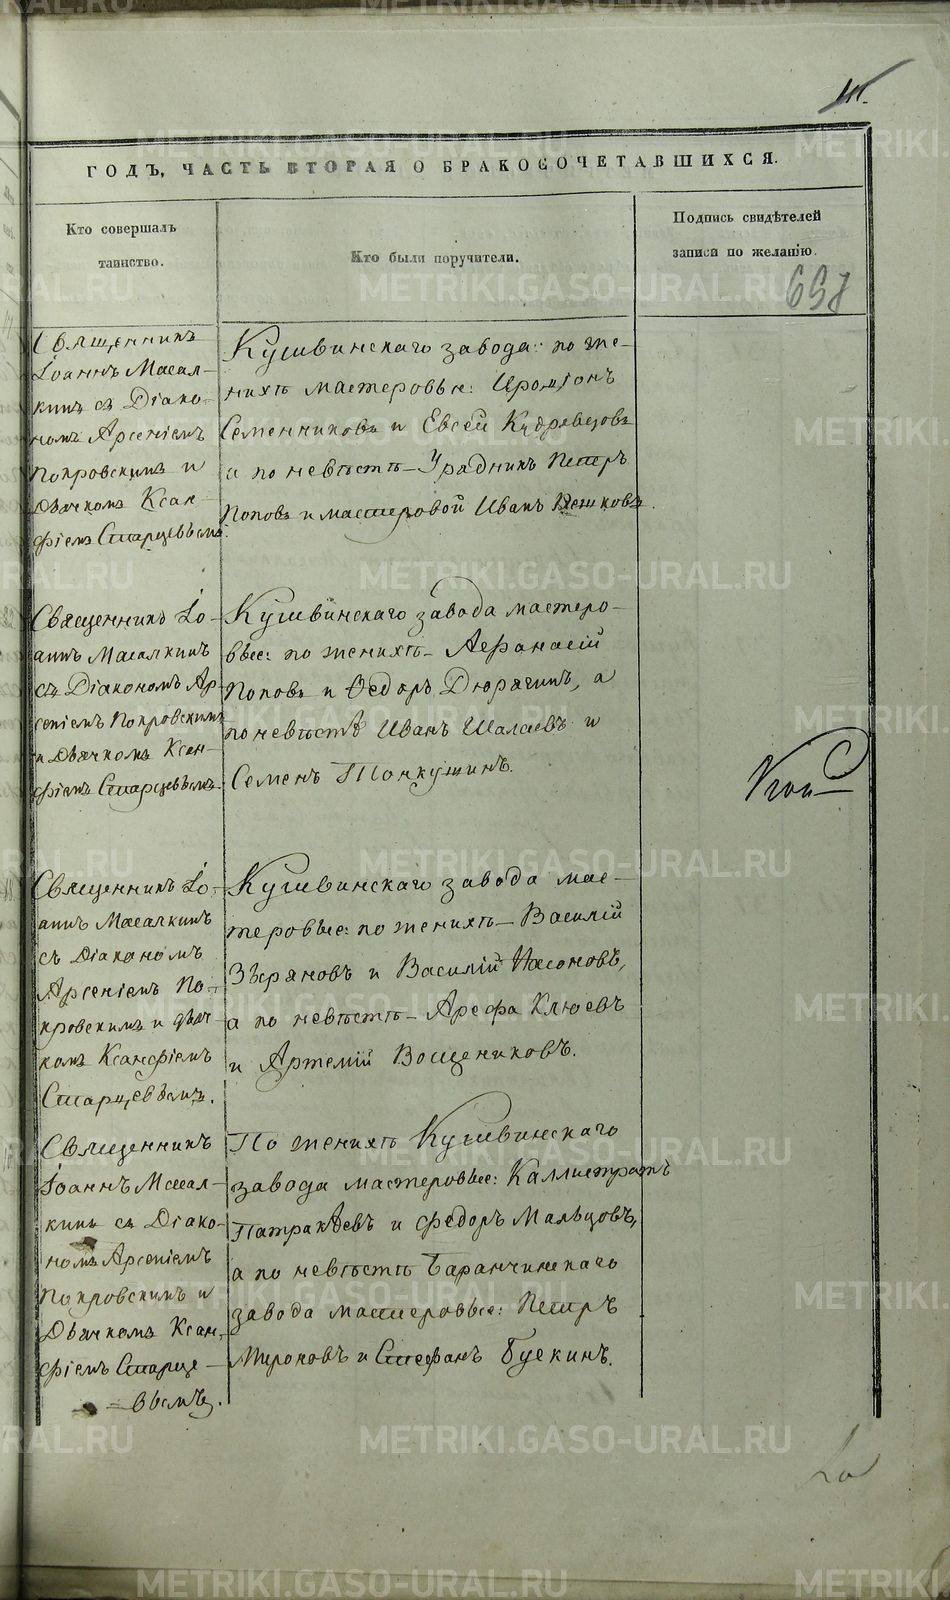 ГОДЪ, ЧАСТЬ ВТОРАЯ О БРАКОСОЧЕТАВШИХСЯ.
Кто совершалъ
таинство.
Кто были поручители.
Подпись свидѣтелей
записи по желанію.
698
Священникъ
Іоаннъ Масал-
кинъ съ Діако-
номъ Арсеніемъ
Покровскимъ и
Дьячкомъ Ксан-
фіемъ Старцевымъ.
Кушвинскаго завода: по же-
нихѣ мастеровые:
Семенниковъ и Евсей Кудрявцовъ
а по невѣстѣ – Урядникъ Петръ
Поповъ и мастеровой Иванъ
Священникъ Іо-
аннъ Масалкинъ
съ Діакономъ Ар-
сеніемъ Покровскимъ
и Дьячкомъ Ксан-
фіемъ Старцевымъ.
Кушвинскаго завода мастеро-
вые: по женихѣ – Афанасій
Поповъ и Ѳедоръ Дюрягинъ, а
по невѣстѣ Иванъ Шалаевъ и
Семенъ Тонкушинъ.
Священникъ Іо-
аннъ Масалкинъ
съ Діакономъ
Арсеніемъ По-
кровскимъ и дьяч-
комъ Ксанфіемъ
Старцевымъ.
Кушвинскаго завода мас-
теровые: по женихѣ – Василій
Зыряновъ и Василій Насоновъ,
а по невѣстѣ – Арефа Клюевъ
и Артемій Вощениковъ.
Священникъ
Іоаннъ Масал-
кинъ съ Діако-
номъ Арсеніемъ
Покровскимъ и
Дьячкомъ Ксан-
фіемъ Старце-
вымъ.
По женихѣ Кушвинскаго
завода мастеровые: Каллистратъ
Патракѣевъ и Федоръ Мальцовъ,
а по невѣстѣ Баранчинскаго
завода мастеровые: Петръ
Мироновъ и Стефанъ Буекинъ.
METRIKI.GASO-URAL.RU